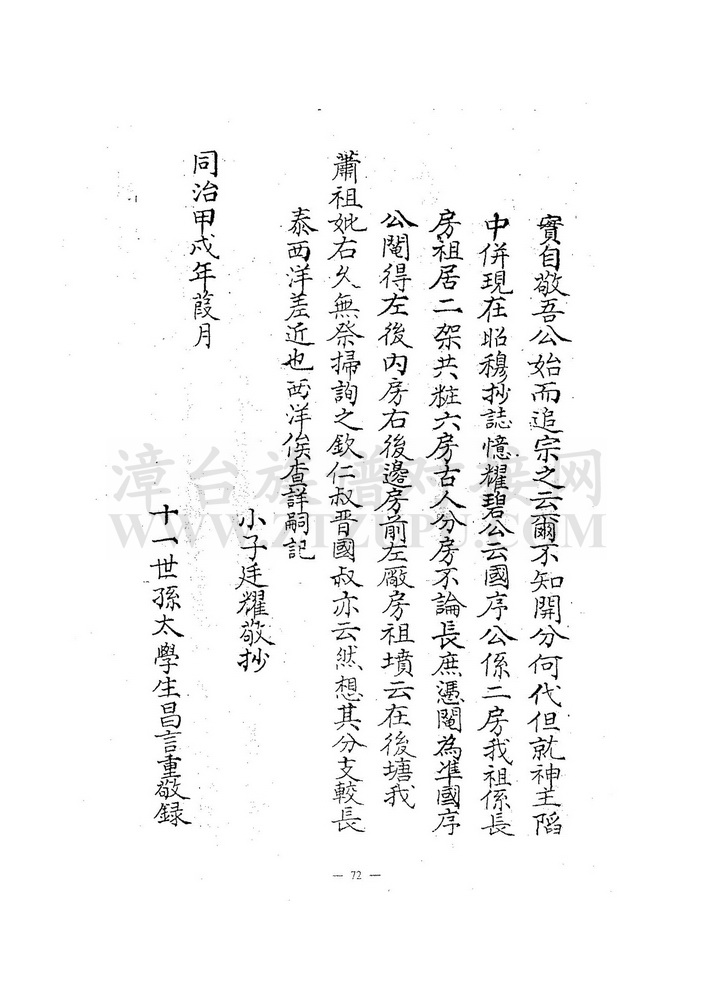 實自敬吾公始而追宗之云爾不知開分何代但就神主謟
中併現在昭穆抄誌憶耀碧公云國序公係二房我祖係長
房祖居二架共粧六房古人分房不論長庶憑鬮為準國序
公鬮得左後內房右後邊房前左廠房祖墳云在後塘我
蕭祖妣右久無祭掃詢之欽仁叔晋國叔亦云然想其分支較長
泰西洋差近也西洋俟查詳嗣記
小子廷耀敬抄
同治甲戌年葭月
十一世孫太學生昌言重敬録
漳台族谱对接网
WWW.ZTZUPU.COM
— 72 —